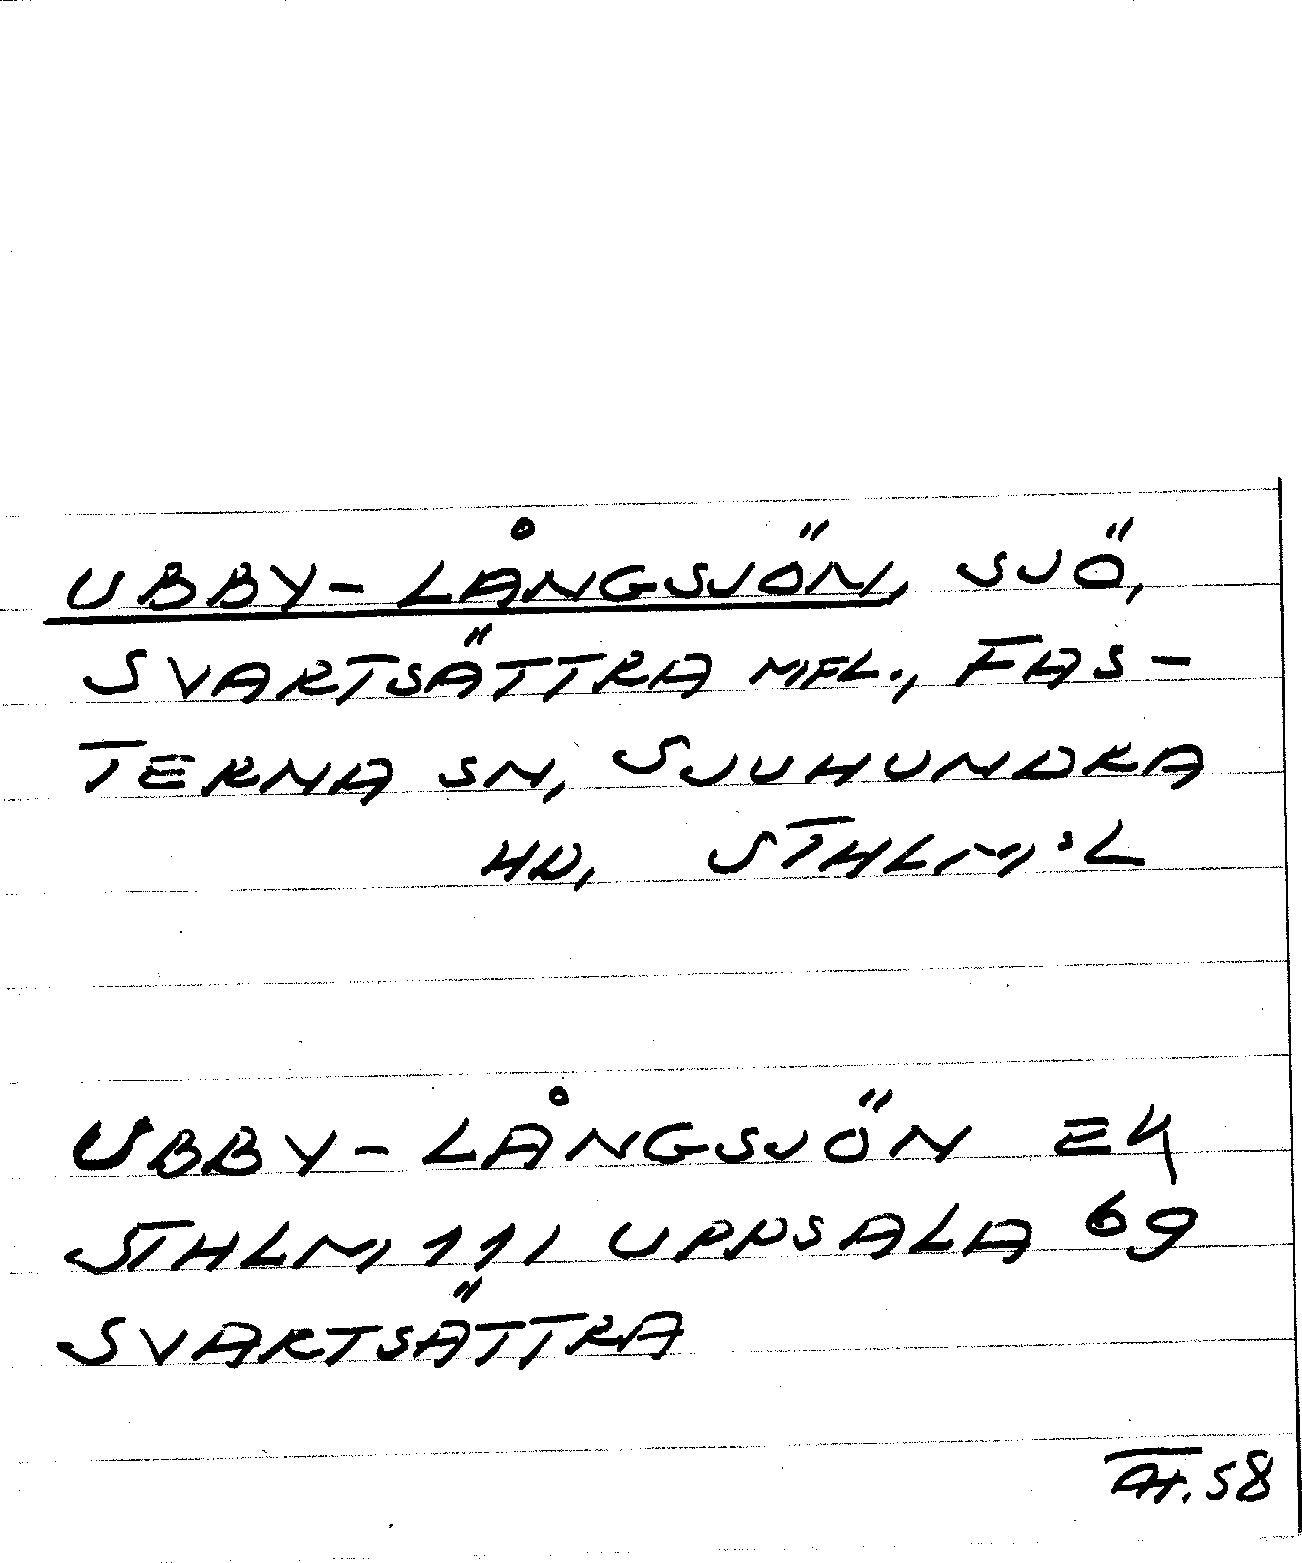 UBBY-LÅNGSJÖN, SJÖ,
SVARTSÄTTRA MFL., FAS-
TERNA SN, SJUHUNDRA
HD, STHLM:S L
UBBY-LÅNGSJÖN EK
STHLM 111 UPPSALA 69
SVARTSÄTTRA
58